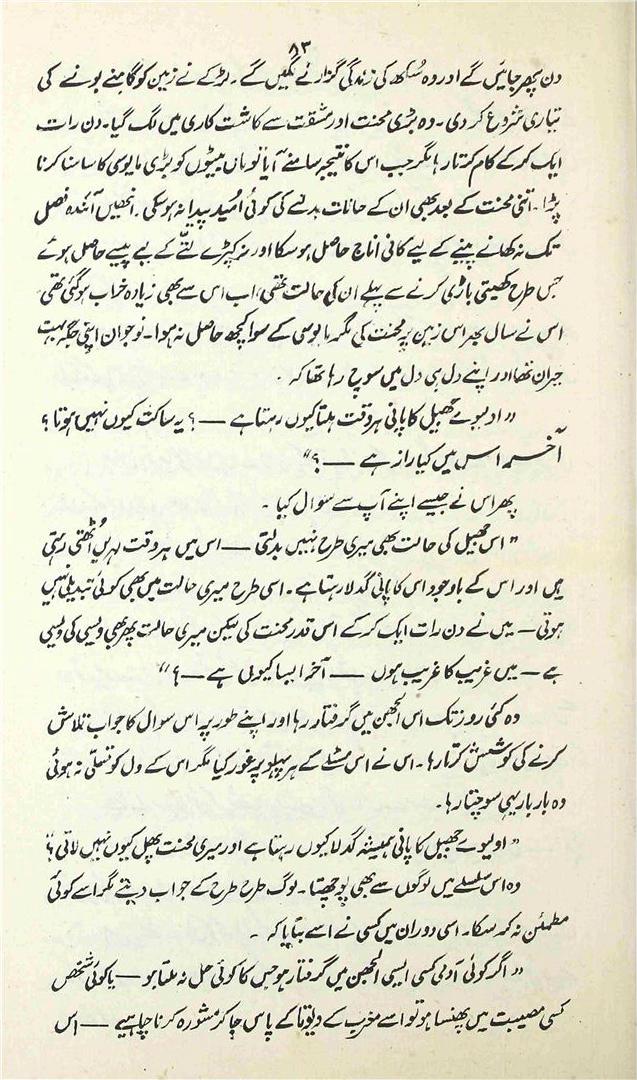 ۸۳
دن پھر جائیں گے اور وہ سُکھ کی زندگی گزارنے لگیں گے۔ لڑکے نے زمین کو گاہنے بونے کی
تیاری شروع کر دی۔ وہ بڑی محنت اور مشقت سے کاشت کاری میں لگ گیا۔ دن رات
ایک کر کے کام کرتا رہا مگر جب اس کا نتیجہ سامنے آیا تو ماں بیٹوں کو بڑی مایوسی کا سامنا کرنا
پڑا۔ اتنی محنت کے بعد بھی ان کے حالات بدلنے کی کوئی اُمید پیدا نہ ہو سکی۔ انھیں آئندہ فصل
تک نہ کھانے پینے کے لیے کافی اناج حاصل ہو سکا اور نہ کپڑے لتّے کے لیے پیسے حاصل ہوئے
جس طرح کھیتی باڑی کرنے سے پہلے ان کی حالت تھی، اب اس سے بھی زیادہ خراب ہو گئی تھی۔
اس نے سال بھر اس زمین پر محنت کی مگر مایوسی کے سوا کچھ حاصل نہ ہوا۔ نوجوان اپنی جگہ بہت
حیران تھا اور اپنے دل ہی دل میں سوچ رہا تھا کہ۔
”اولیوے جھیل کا پانی ہر وقت ہلتا کیوں رہتا ہے —؟ یہ ساکت کیوں نہیں ہوتا؟
آخر اس میں کیا راز ہے —؟“
پھر اس نے جیسے اپنے آپ سے سوال کیا۔
”اس جھیل کی حالت بھی میری طرح نہیں بدلتی — اس میں ہر وقت لہریں اُٹھتی رہتی
ہیں اور اس کے باوجود اس کا پانی گدلا رہتا ہے۔ اسی طرح میری حالت میں بھی کوئی تبدیلی نہیں
ہوتی — میں نے دن رات ایک کر کے اس قدر محنت کی لیکن میری حالت پھر بھی ویسی کی ویسی
ہے — میں غریب کا غریب ہوں — آخر ایسا کیوں ہے —؟“
وہ کئی روز تک اس الجھن میں گرفتار رہا اور اپنے طور پر اس سوال کا جواب تلاش
کرنے کی کوشش کرتا رہا۔ اس نے اس مسئلے کے ہر پہلو پر غور کیا مگر اس کے دل کو تسلّی نہ ہوئی
وہ بار بار یہی سوچتا رہا۔
”اولیوے جھیل کا پانی ہمیشہ گدلا کیوں رہتا ہے اور میری محنت پھل کیوں نہیں لاتی؟“
وہ اس سلسلے میں لوگوں سے بھی پوچھتا۔ لوگ طرح طرح کے جواب دیتے مگر اسے کوئی
مطمئن نہ کر سکا۔ اسی دوران میں کسی نے اسے بتایا کہ۔
”اگر کوئی آدمی کسی ایسی الجھن میں گرفتار ہو جس کا کوئی حل نہ ملتا ہو — یا کوئی شخص
کسی مصیبت میں پھنسا ہو تو اسے مغرب کے دیوتا کے پاس جا کر مشورہ کرنا چاہیے — اس